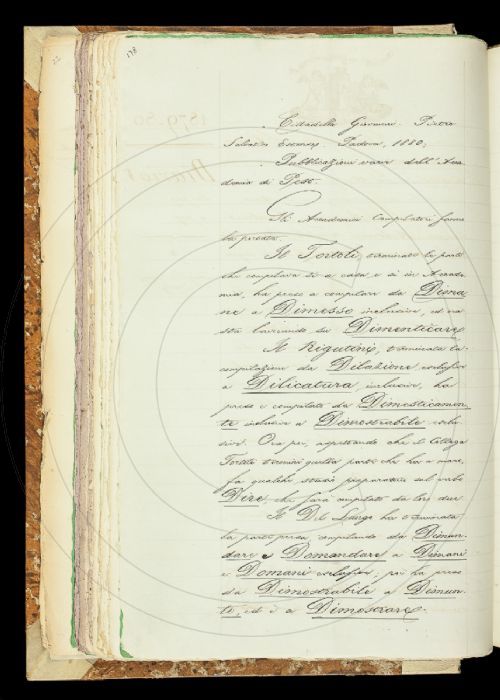 178
Cittadella Giovanni. Pietro
Salvatico Estense. Padova, 1880,
Pubblicazioni varie dell'Acca
demia di Pest.
Gli Accademici Compilatori fanno
la presa.
Il Tortoli, terminata la parte
che compilava tra a casa e sì in Accade
mia, ha preso a compilare da Dima
ne a Dimesso inclusive, ed ora
sta lavorando su Dimenticare
Il Rigutini, terminata la
compilazione da Dilazione esclusive
a Dilicatura inclusive, ha
preso a compilare da Dimesticamen
te inclusive a Dimostrabile esclu
sive. Ora poi, aspettando che il Collega
Tortoli termini quella parte che ha a mano,
fa qualche studio preparatorio sul verbo
Dire, che sarà compilato da loro due.
Il Del Lungo ha terminata
la parte presa, compilando da Diman
dare e Domandare a Dimani
e Domani esclusive; poi ha preso
da Dimostrabile a Dimun
to, ed è a Dimostrare.